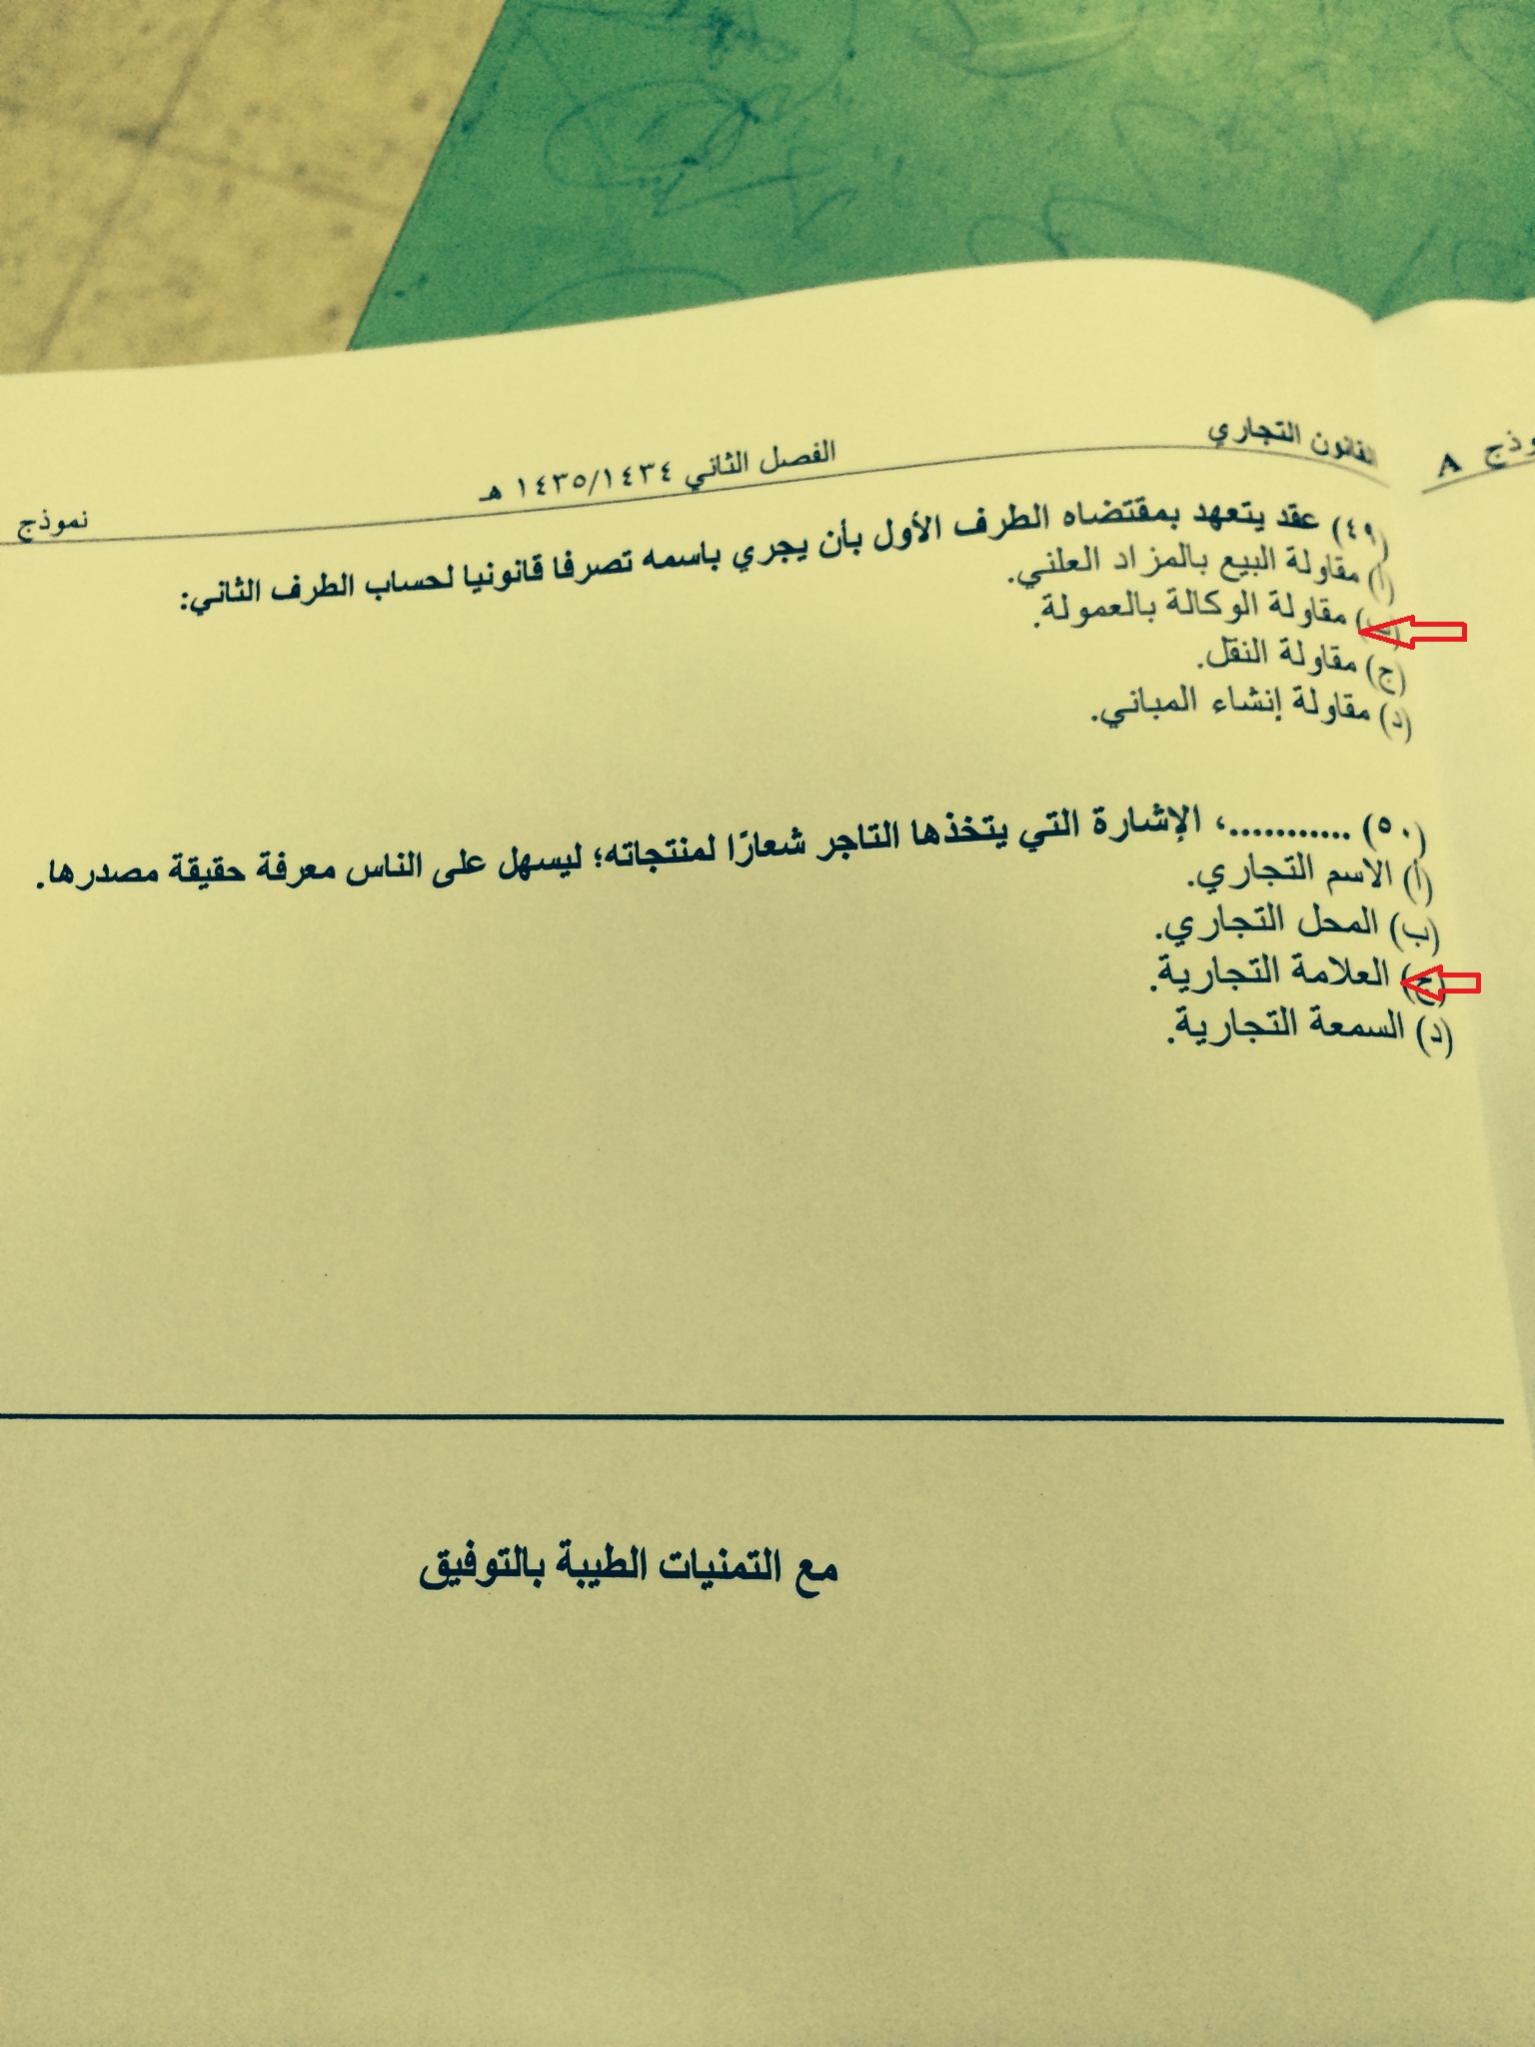 وذج A
القانون التجاري
الفصل الثاني ١٤٣٥/١٤٣٤ هـ
نموذج
(٤٩) عقد يتعهد بمقتضاه الطرف الأول بأن يجري باسمه تصرفا قانونيا لحساب الطرف الثاني:
(أ) مقاولة البيع بالمزاد العلني.
(ب) مقاولة الوكالة بالعمولة.
(ج) مقاولة النقل.
(د) مقاولة إنشاء المباني.
(٥٠) ............، الإشارة التي يتخذها التاجر شعارًا لمنتجاته؛ ليسهل على الناس معرفة حقيقة مصدرها.
(أ) الاسم التجاري.
(ب) المحل التجاري.
(ج) العلامة التجارية.
(د) السمعة التجارية.
مع التمنيات الطيبة بالتوفيق